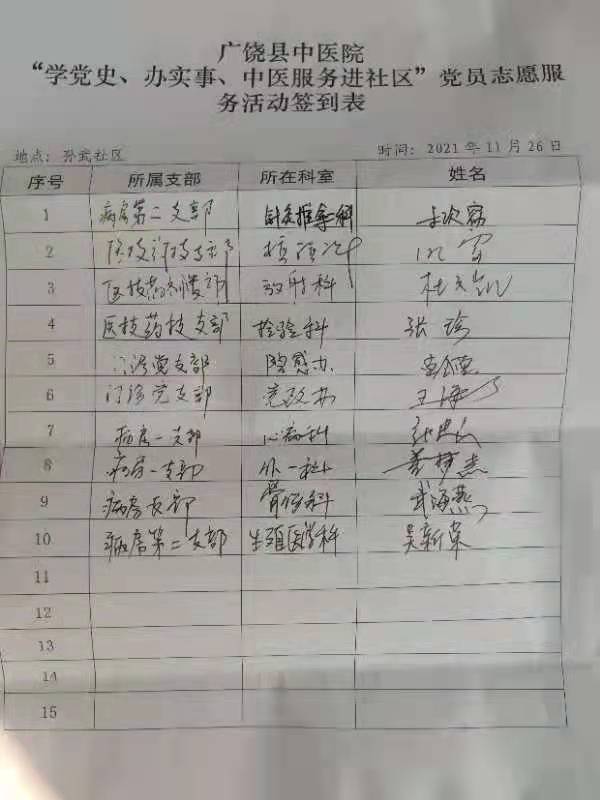 广饶县中医院
“学党史、办实事、中医服务进社区”党员志愿服
务活动签到表
地点：孙武社区 时间：2021年11月26日
序号 所属支部 所在科室 姓名
1 病房第二支部 针灸推拿科
2
3 放射科
4 医技药技支部 检验科 张珍
5 门诊党支部 院感办
6 门诊党支部 党政办 王海
7 病房一支部 心病科
8 病房一支部 外一科
9 病房支部 骨伤科 海燕
10 病房第二支部 生殖医学科 吴新荣
11
12
13
14
15